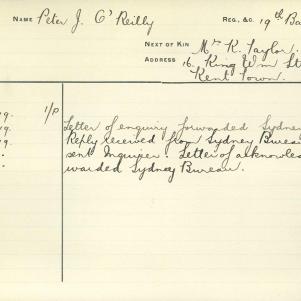 NAME Peter J. O'Reilly REG., &C. 19th Ba
NEXT OF KIN Mrs K. Taylor.
ADDRESS 16. King Wm St
Kent Town.
19. 1/P Letter of enquiry forwarded Sydney
19. Reply received from Sydney Bureau
19. sent Inquirer. Letter of acknowle
warded Sydney Bureau.